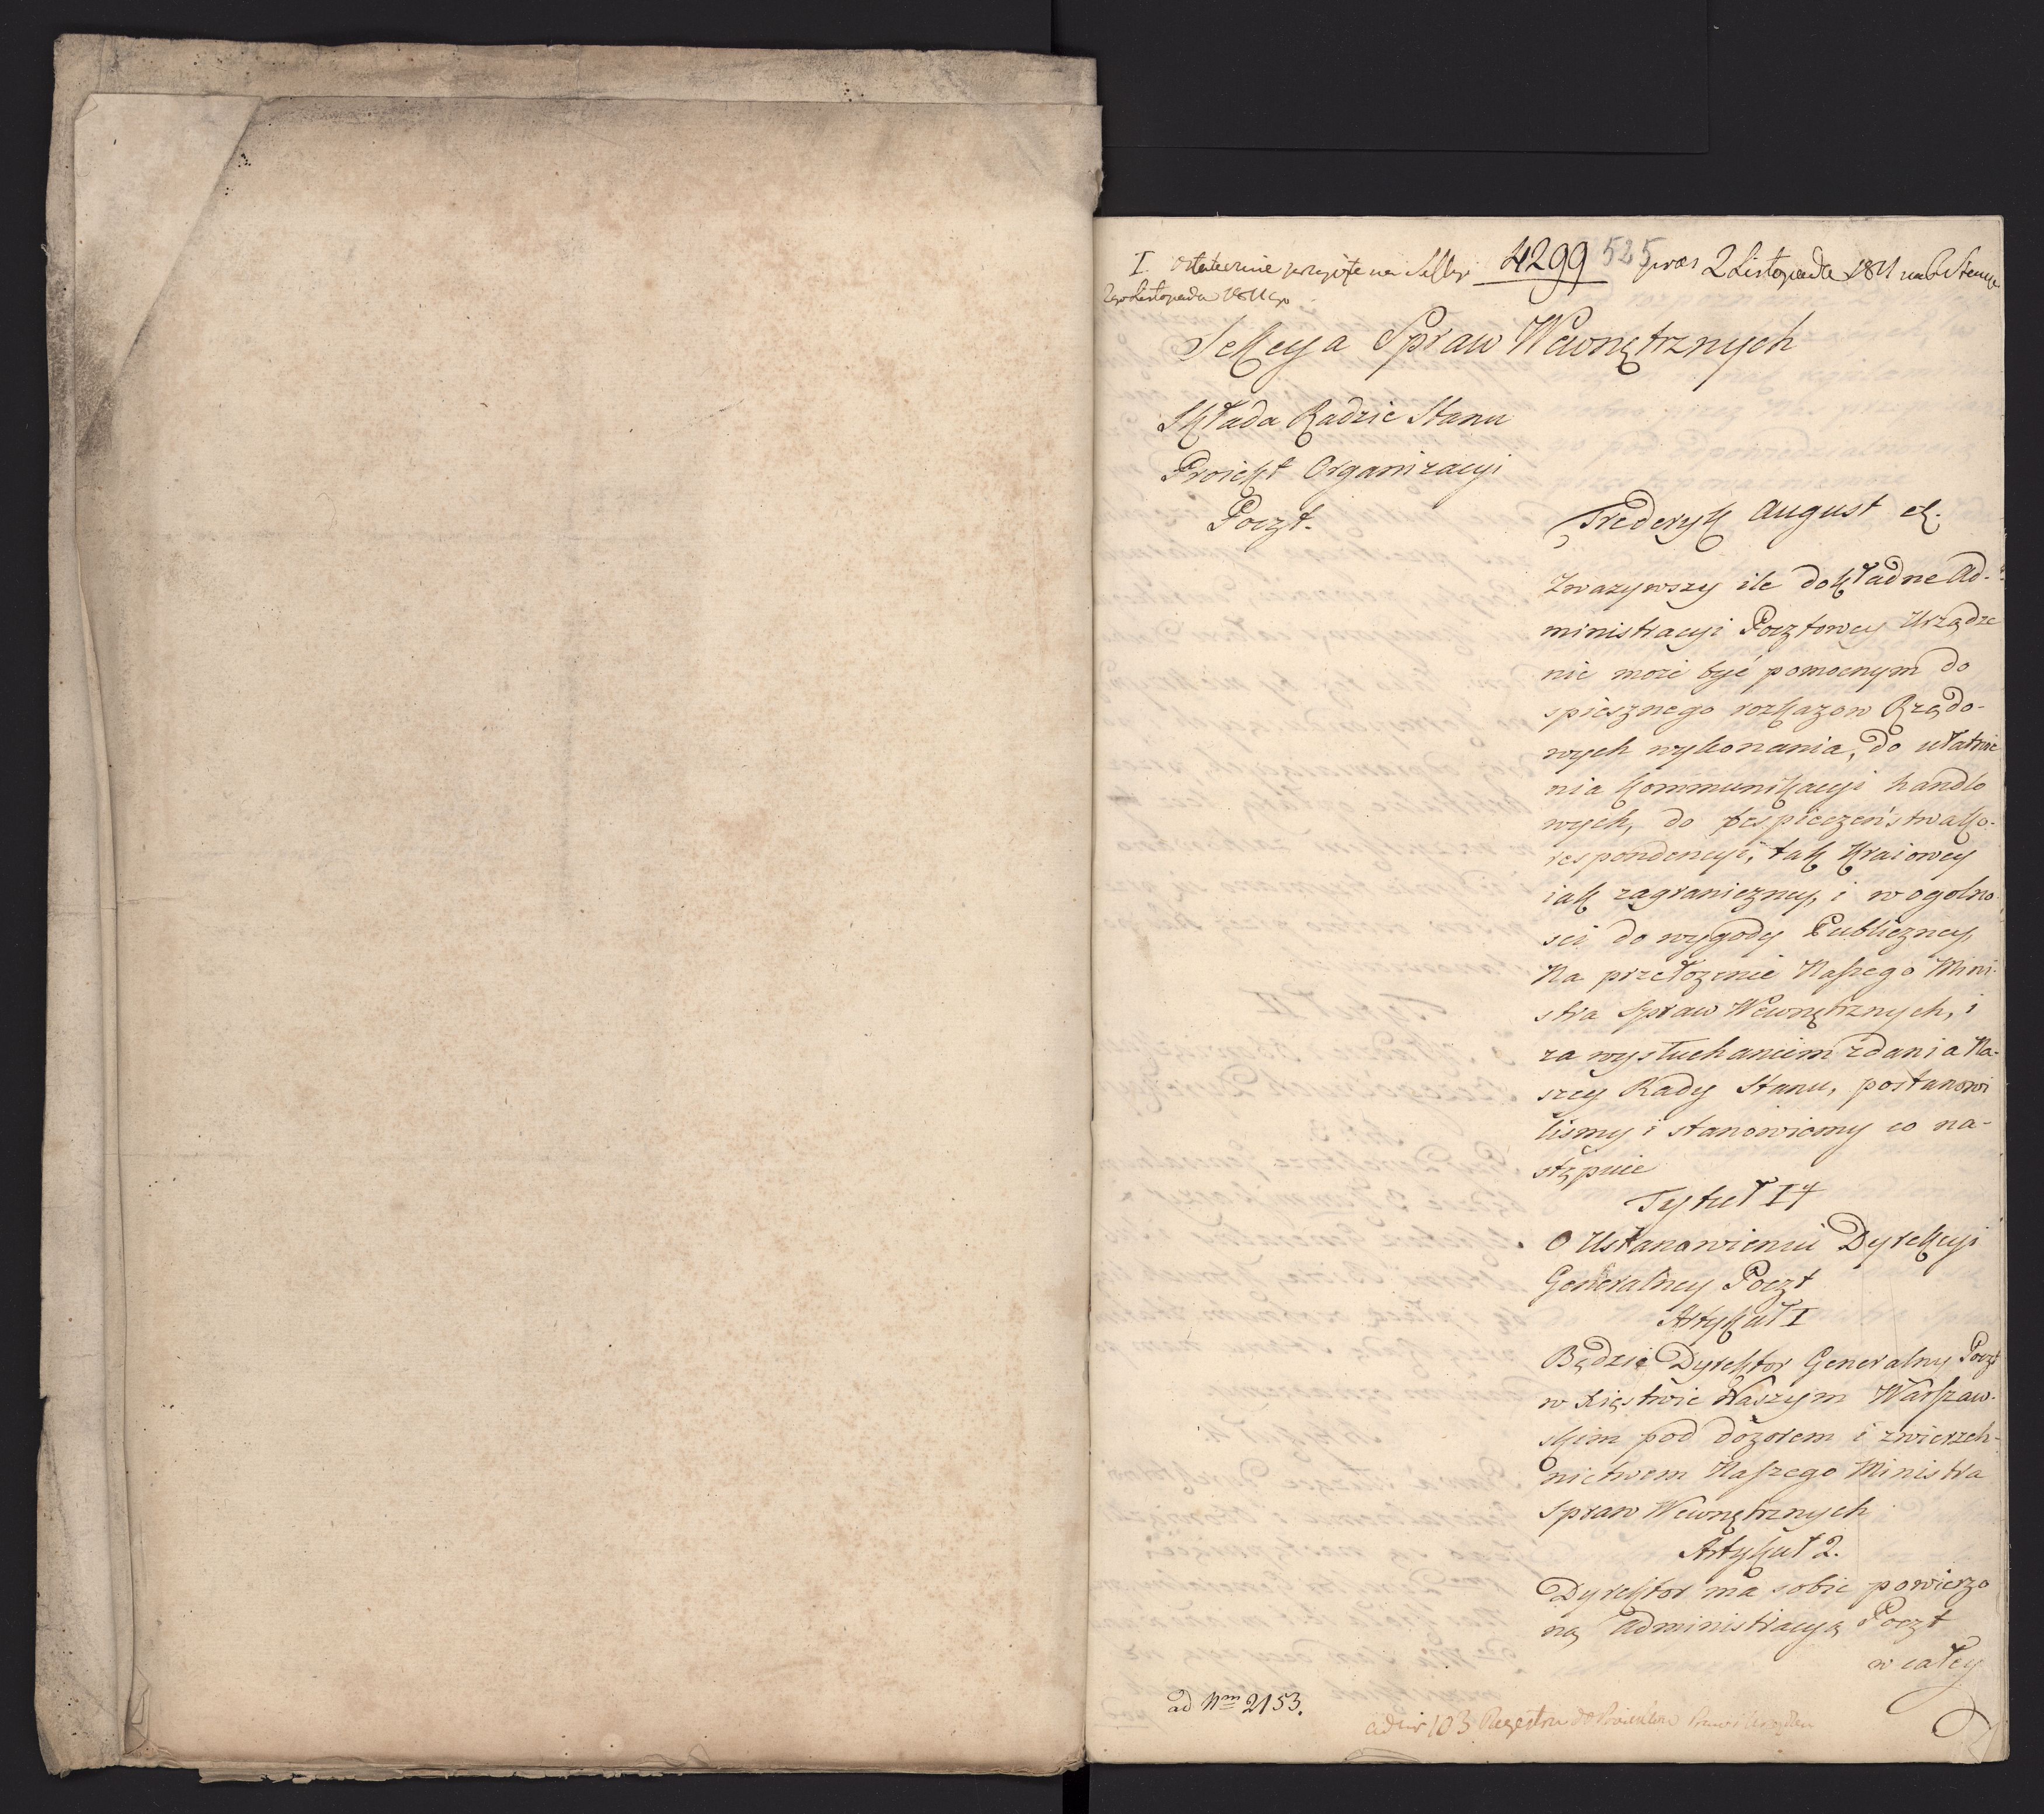 I ostatecznie przyięte na Sessyi 4299 525 præs 2 Listopada 1811
2go Listopada 1811 go
Sekcya Spraw Wewnętrznych
Składa Radzie Stanu
Proiekt Organizacyi
Poczt.
Frederyk August etc.
Zwazywszy ile dokładne Ad-
ministracyi Pocztowey Urządze
nie może być pomocnym do
spiesznego rozkazow Rządo-
wych wykonania, do ułatwie
nia kommunikacyi handlo
wych, do bespieczeństwa ko-
respondencyi, tak Kraiowey
iak zagraniczney, i w ogolno
sci do wygody Publiczney,
Na przełożenie Naszego Mini-
stra Spraw Wewnętrznych, i
za wysłuchaniem zdania Na-
szey Rady Stanu, postanowi
lismy i stanowiemy co na-
stępuie
Tytuł I
O Ustanowieniu Dyrekcyi
Generalney Poczt
Artykuł I
Będzie Dyrektor Generalny Poczt
w Xięstwie Naszym Warszaw-
skim pod dozorem i zwierzch-
nictwem Naszego Ministra
Spraw Wewnętrznych
Artykuł 2.
Dyrektor ma sobie powierzo
ną Administracyą Poczt
w całey
ad Nrm 2153.
ad nr 103 Regestru do Proiektow